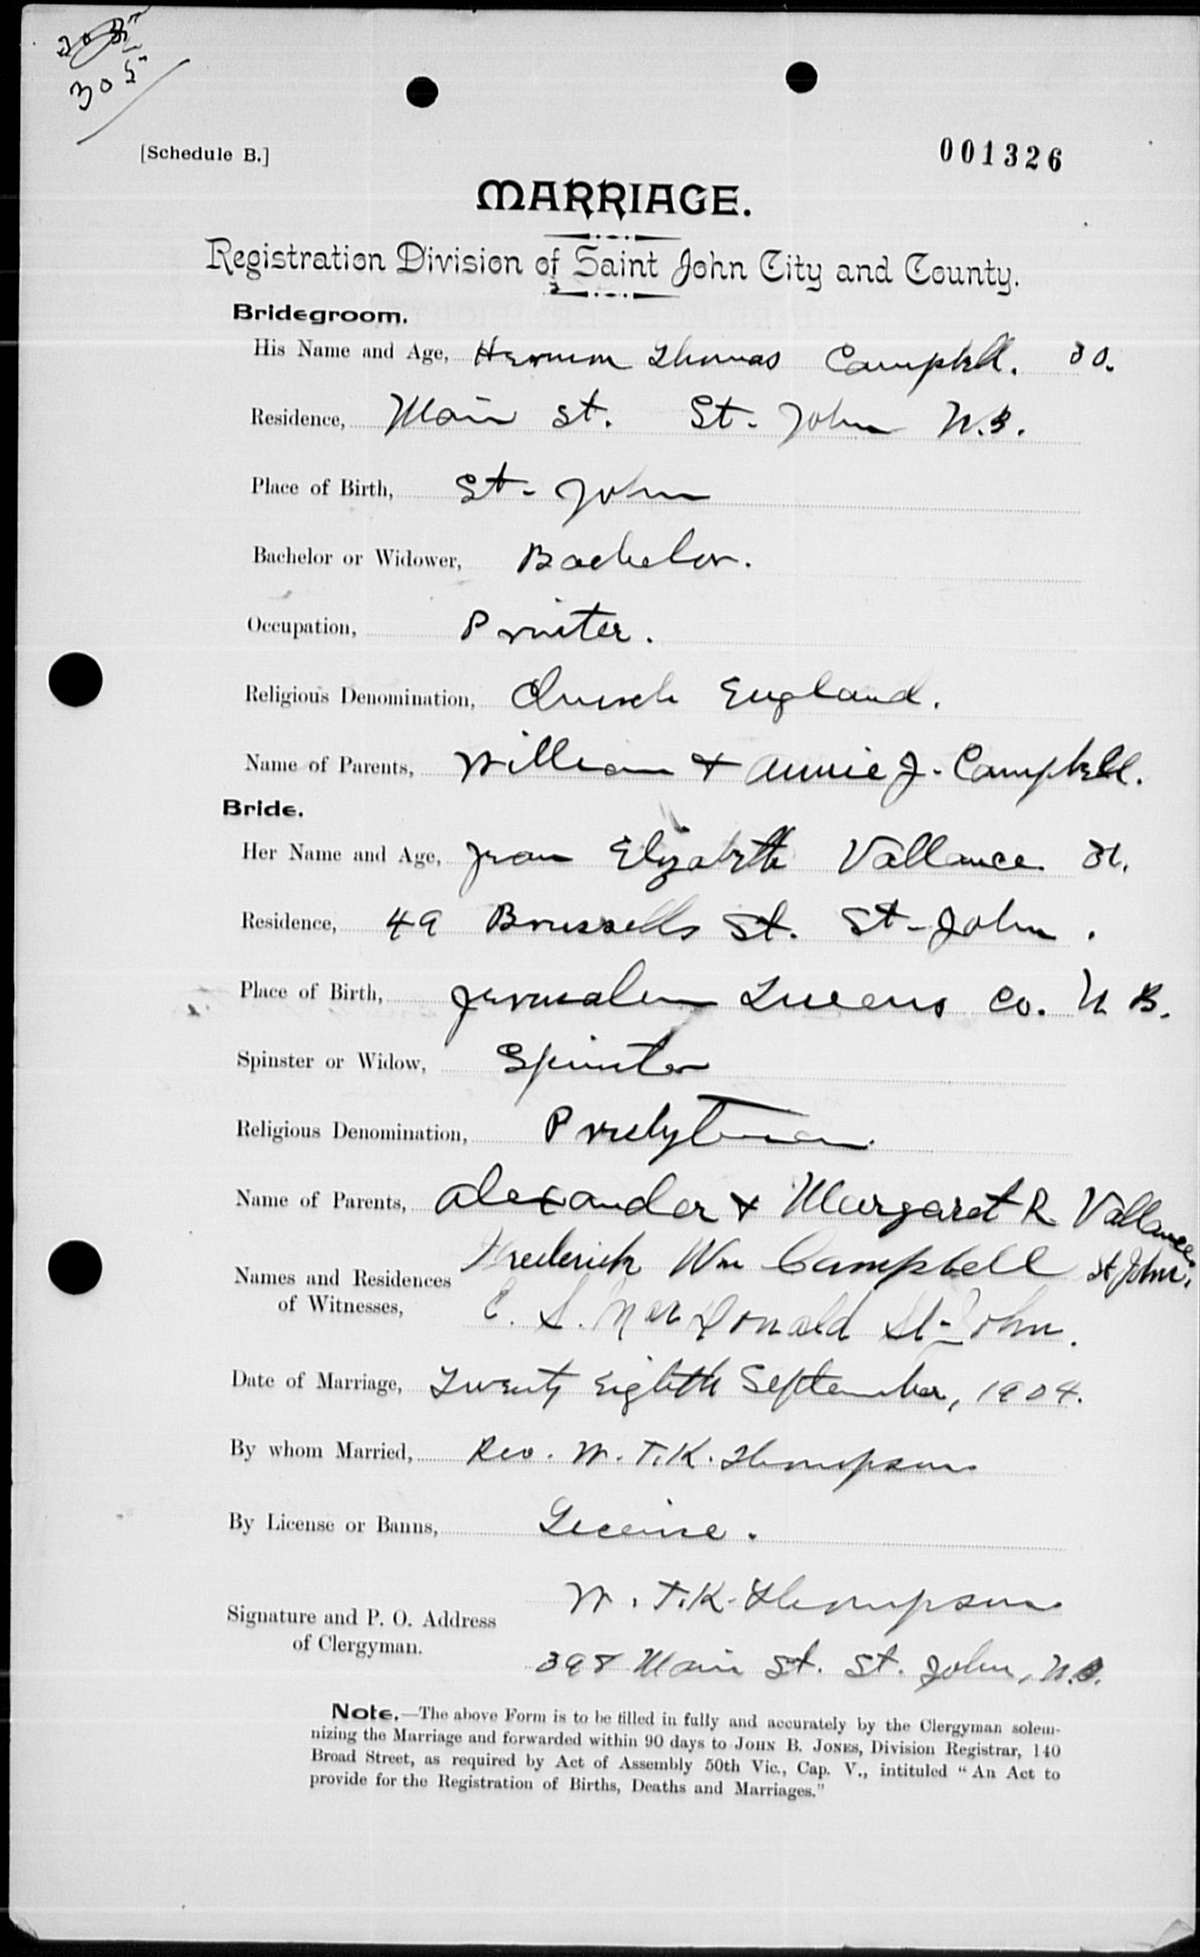 305
[Schedule B.]
001326
MARRIAGE.
Registration Division of Saint John City and County.
Bridegroom.
His Name and Age, Herman Thomas Campbell. 30.
Residence, Main St. St. John N.B.
Place of Birth, St. John
Bachelor or Widower, Bachelor.
Occupation, Printer.
Religious Denomination, Church England.
Name of Parents, William & Annie J. Campbell.
Bride.
Her Name and Age, Jean Elizabeth Vallance.
Residence, 49 Brussells St. St. John.
Place of Birth, Jerusalem Queens Co. N B.
Spinster or Widow, Spinster
Religious Denomination, Presbyterian.
Name of Parents, Alexander & Margaret R Vallance
Names and Residences Frederick Wm Campbell St John,
of Witnesses, E. S. MacDonald St. John.
Date of Marriage, Twenty Eighth September, 1904.
By whom Married, Rev. W. T. K. Thompson
By License or Banns, License.
Signature and P. O. Address W. T. K. Thompson
of Clergyman. 398 Main St. St. John, N.B.
Note.—The above Form is to be filled in fully and accurately by the Clergyman solem-
nizing the Marriage and forwarded within 90 days to JOHN B. JONES, Division Registrar, 140
Broad Street, as required by Act of Assembly 50th Vic., Cap. V., intituled "An Act to
provide for the Registration of Births, Deaths and Marriages."